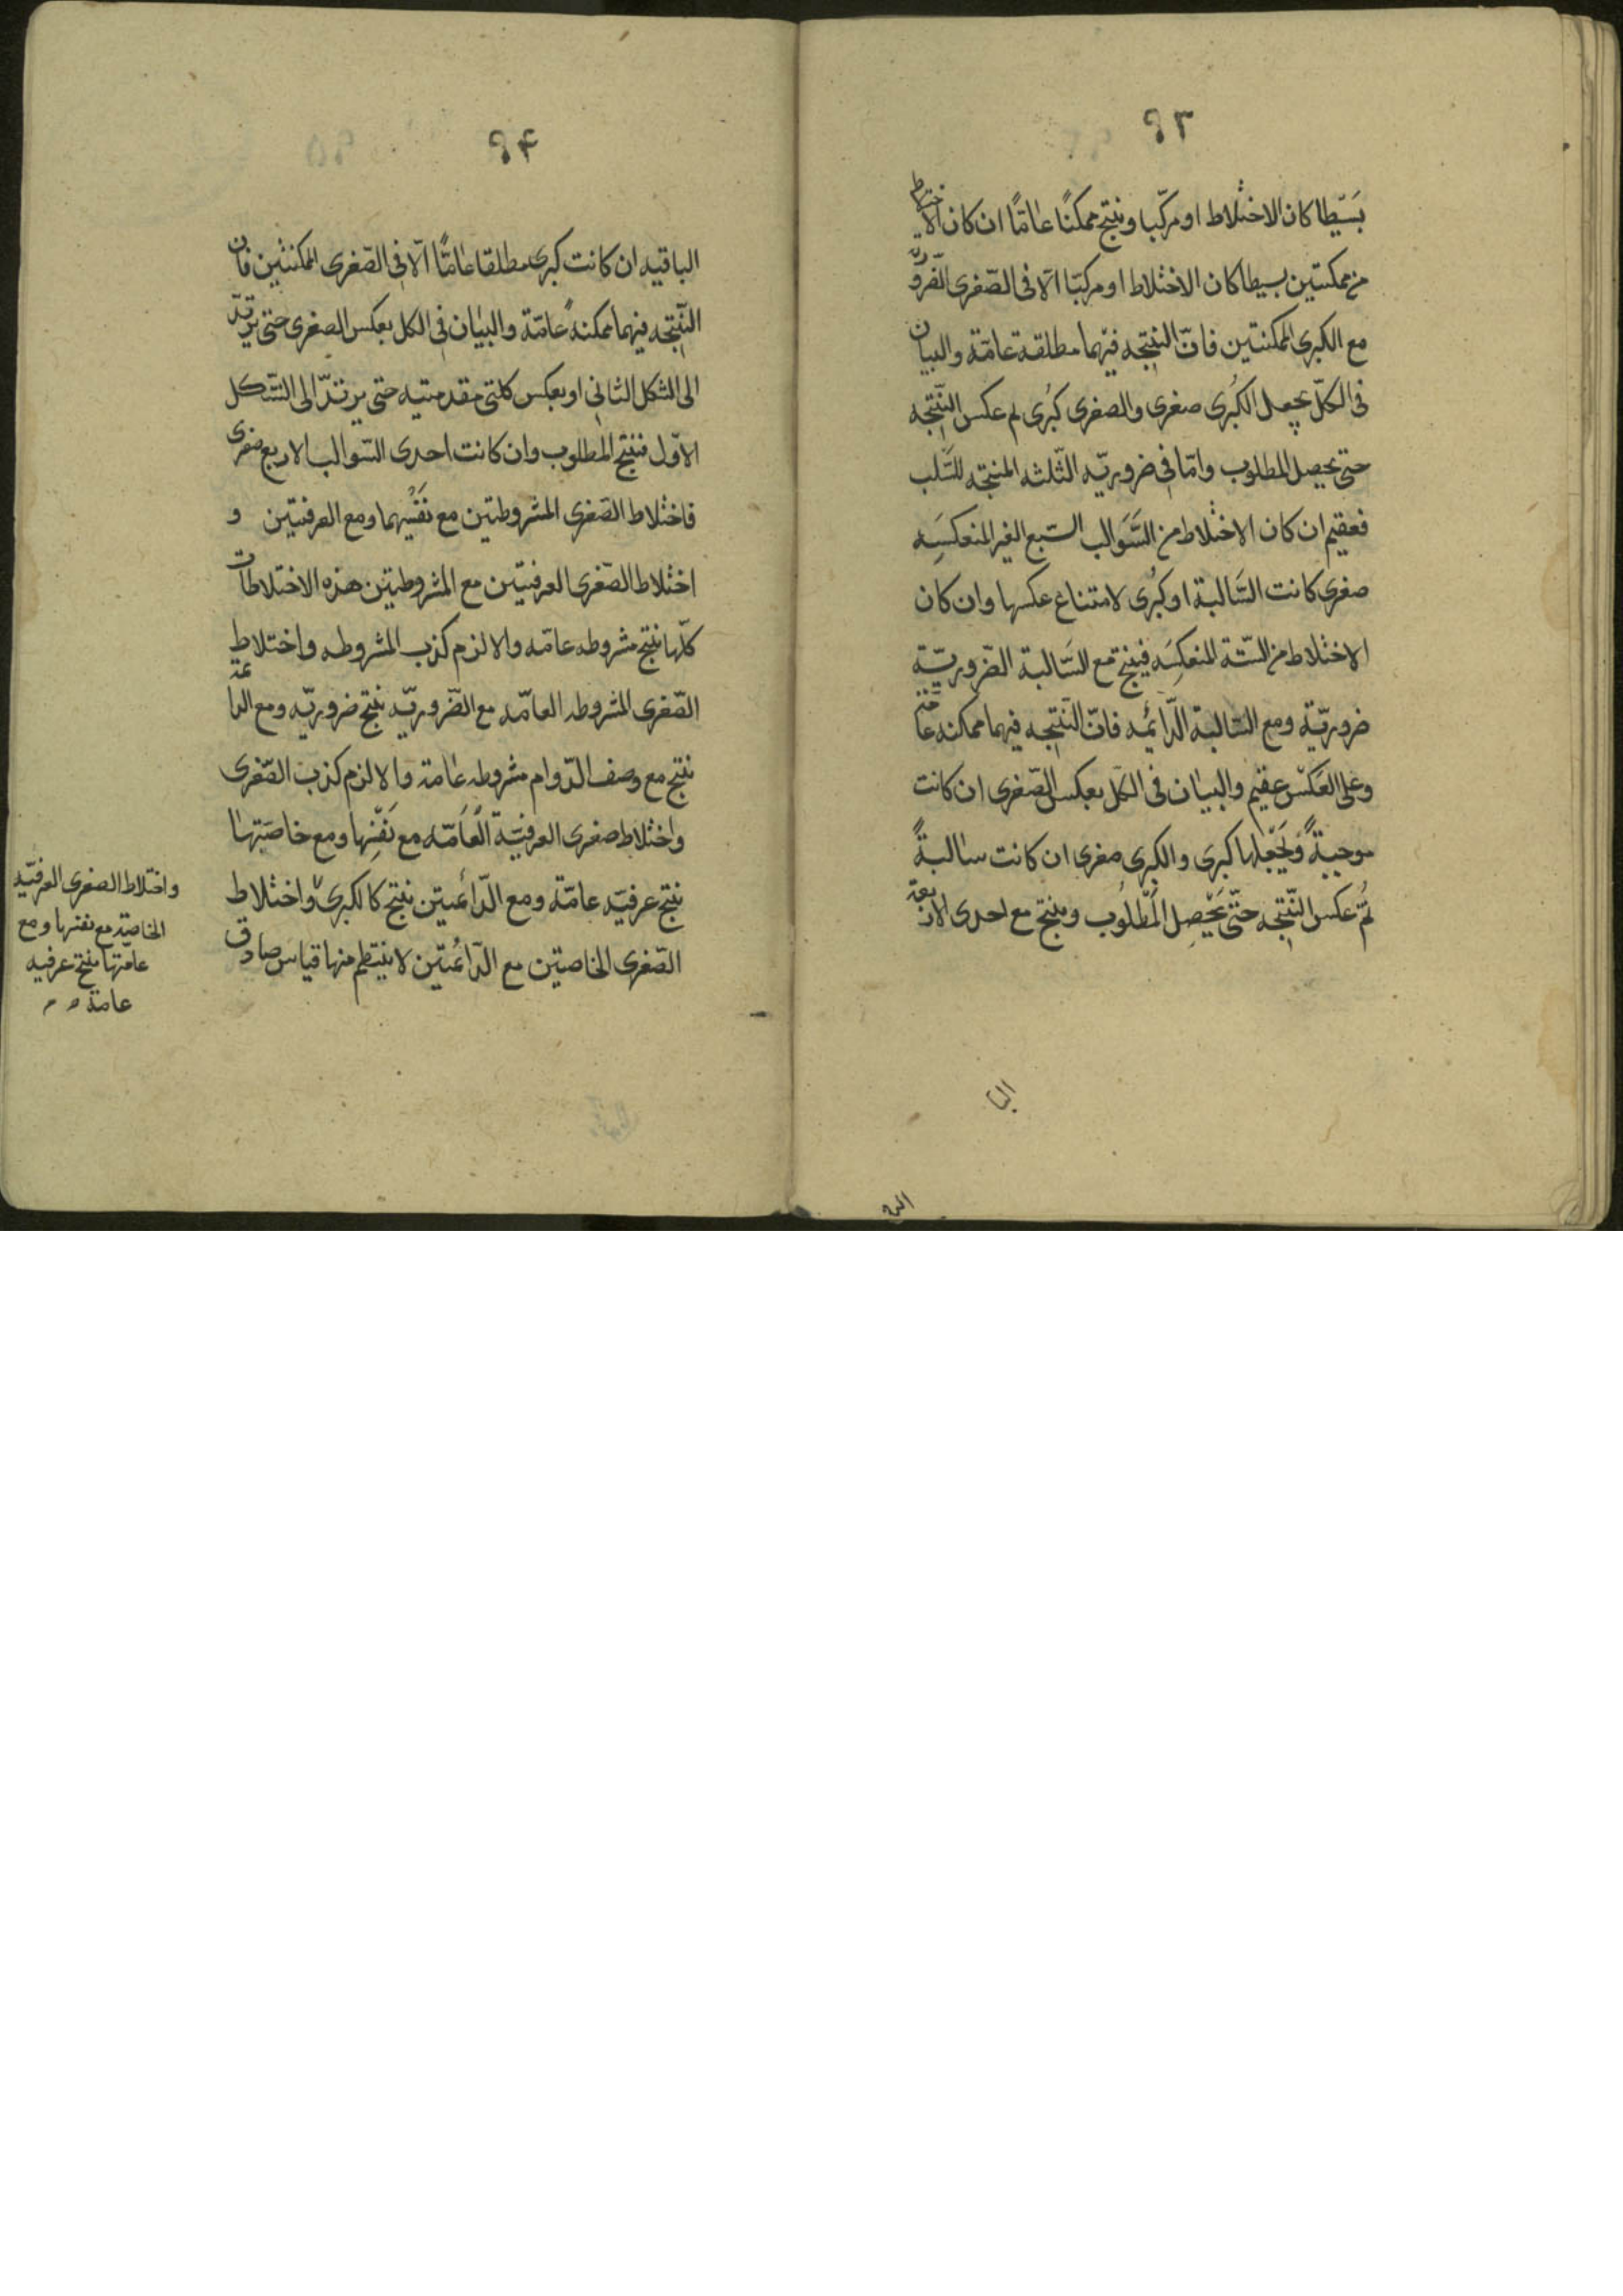 ۹۳
بسيطا كان الاختلاط او مركبا وينتج ممكنًا عامًّا ان كان الاختلاط
من ممكنتين بسيطا كان الاختلاط او مركبّا الّا فى الصّغرى الضّروريّه
مع الكبرى الممكنتين فانّ النتيجه فيهما مطلقة عامّة والبيان
فى الكلّ بجعل الكُبرى صغرى والصغرى كبُرى ثم عكس النّتيجه
حتى يحصل المطلوب وامّا فى ضروريّه الثّلثه المنتجه للسَّلب
فعقيم ان كان الاختلاط من السَّوالب السّبع الغير المنعكسَه
صغرى كانت السَّالبة او كُبرى لامتناع عكسها وان كان
الاختلاط من السّتة المنعكسَه فينتج مع السَّالبة الضّروريّة
ضروريّة ومع السّالبة الدّائمه فانّ النّتيجه فيهما ممكنه عامّة
وعلى العَكس عقيم والبيان فى الكلّ بعكس الصّغرى ان كانت
موجبةً وبجَعْلها كبرى والكبرى صغرى ان كانت سالبةً
ثمّ عكس النّتيجه حتّى يَحْصِل المَطْلُوب وينتج مع احدى الاربعة
البا
۹۴
الباقيه ان كانت كبرى مطلقا عامًّا الّا فى الصّغرى الممكنتين فان
النّتيجه فيهما ممكنةً عامّة والبيان فى الكل بعكس الصغرى حتى يرتدّ
الى الشكل الثانى او بعكس كلتى مقدمتيه حتى يرتدّ الى الشّكل
الاوّل فينتج المطلوب وان كانت احدى السّوالب الاربع صغرى
فاختلاط الصّغرى المشروطتين مع نَفْسِهما ومع العرفيتين و
اختلاط الصّغرى العرفيتين مع المشروطتين هذه الاختلاطات
كلّها ينتج مشروطه عامّه والا لزم كذب المشروطه واختلاط
الصّغرى المشروطه العامّه مع الضّروريّه ينتج ضروريّه ومع الدائمة
ينتج مع وصف الدّوام مشروطه عامة والا لزم كذب الصّغرى
واختلاط صغرى العرفيّة العَامّه مع نَفْسِها ومع خاصّتها
ينتج عرفيّه عامّة ومع الدّائمتين ينتج كالكبرى واختلاط
الصّغرى الخاصتين مع الدّائمتين لا ينتظم منها قياس صادق
واختلاط الصغرى العرفيّه
الخاصّة مع نفسها ومع
عامّتها ينتج عرفيه
عامة